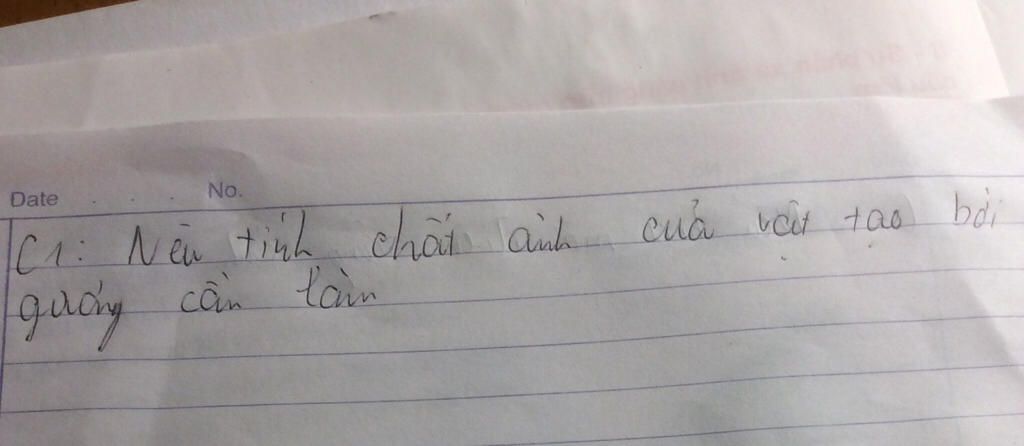 Date No.
C1: Nêu tính chất ảnh của vật tạo bởi
gương cần tàm